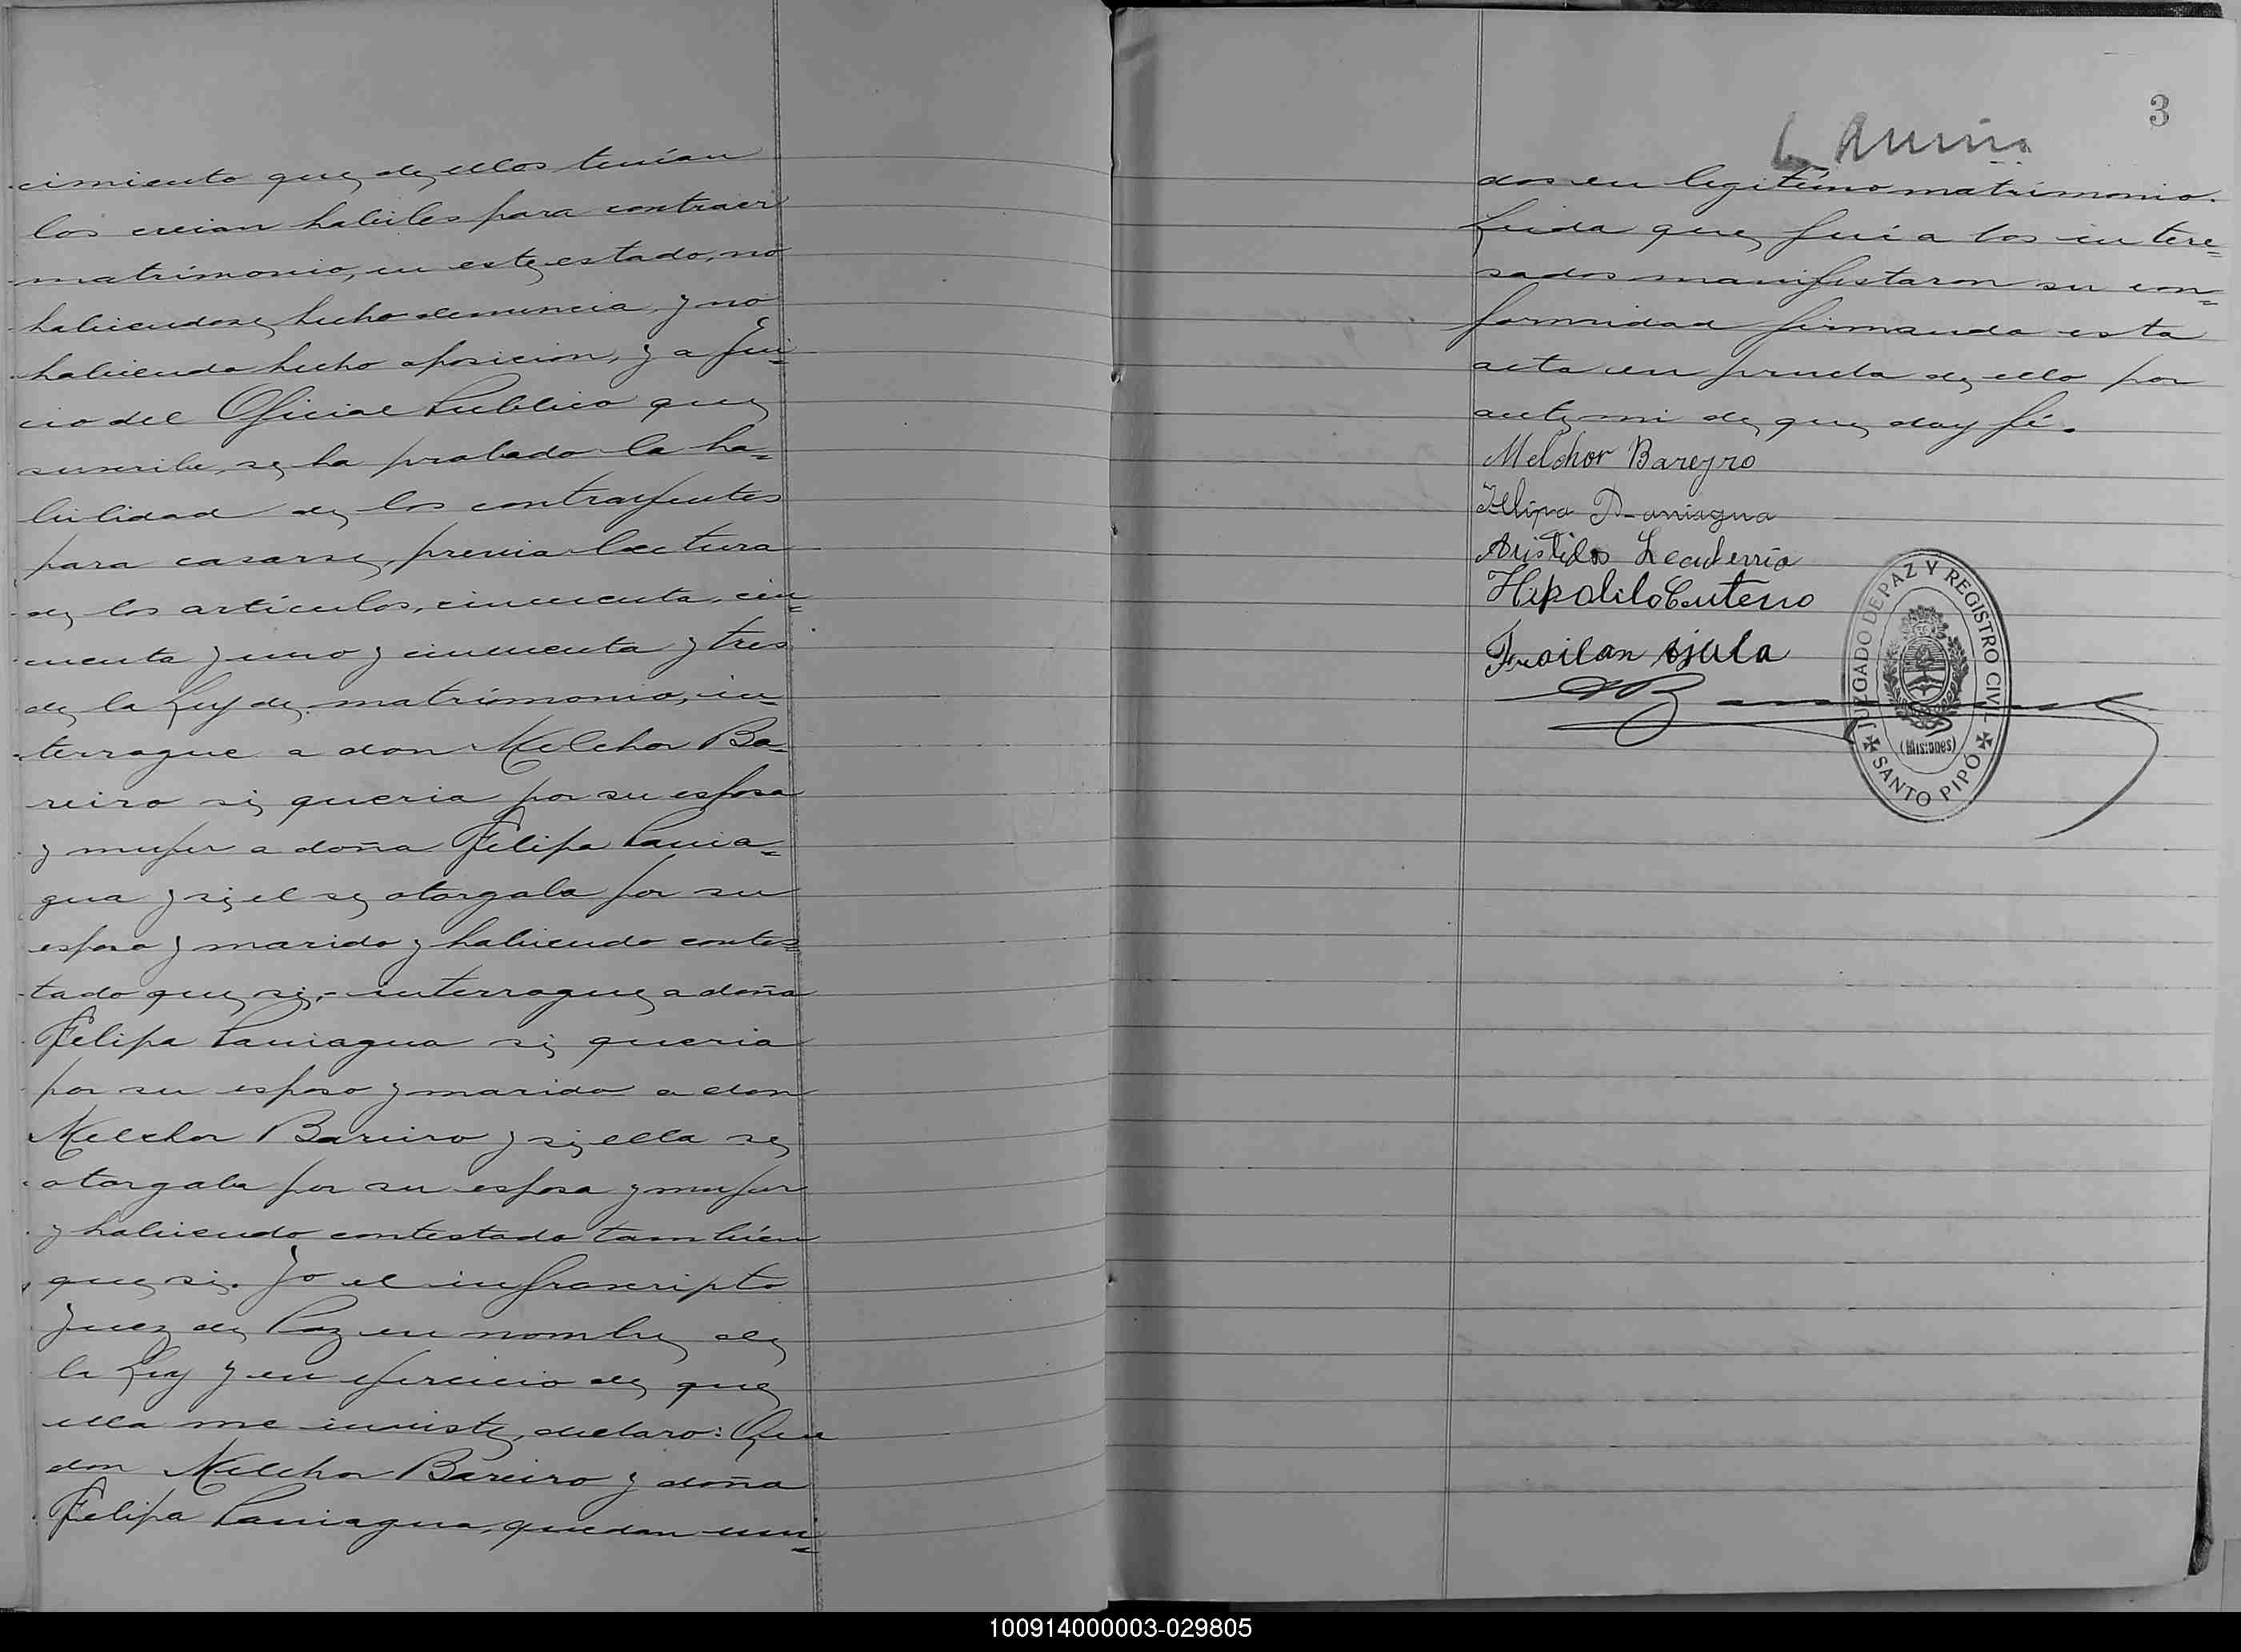 cimiento que de ellos tenían
los creian habiles para contraer
matrimonio, en este estado, no
habiendose hecho denuncia y no
habiendo hecho oposicion, y a jui=
cio del Oficial Publico que
suscribe, se ha probado la ha=
bilidad de los contrayentes
para casarse, previa lectura
de los artículos, cincuenta, cin=
cuenta y uno y cincuenta y tres
de la Ley de matrimonio, in=
terrogue a don Melchor Ba=
reiro si queria por su esposa
y mujer a doña Felipa Pania=
gua y si el se otorgaba por su
esposo y marido y habiendo contes=
tado que si,- interrogue a doña
Felipa Paniagua si queria
por su esposo y marido a don
Melchor Bareiro y si ella se
otorgaba por su esposa y mujer
y habiendo contestado también
que si. Yo el infrascripto
Juez de Paz en nombre de
la Ley y en ejercicio de que
ella me inviste, declaro: Que
don Melchor Bareiro y doña
Felipa Paniagua, quedan uni=
3
dos en legitimo matrimonio.
Leida que fué a los intere=
sados manifestaron su con=
formidad firmando esta
acta en prueba de ello por
ante mi de que doy fé.
Melchor Bareyro
Felipa Paniagua
Aristides
Hipolito
Froilan Ajala
JUZGADO DE PAZ Y REGISTRO CIVIL
(Misiones)
SANTO PIPÓ
100914000003-029805